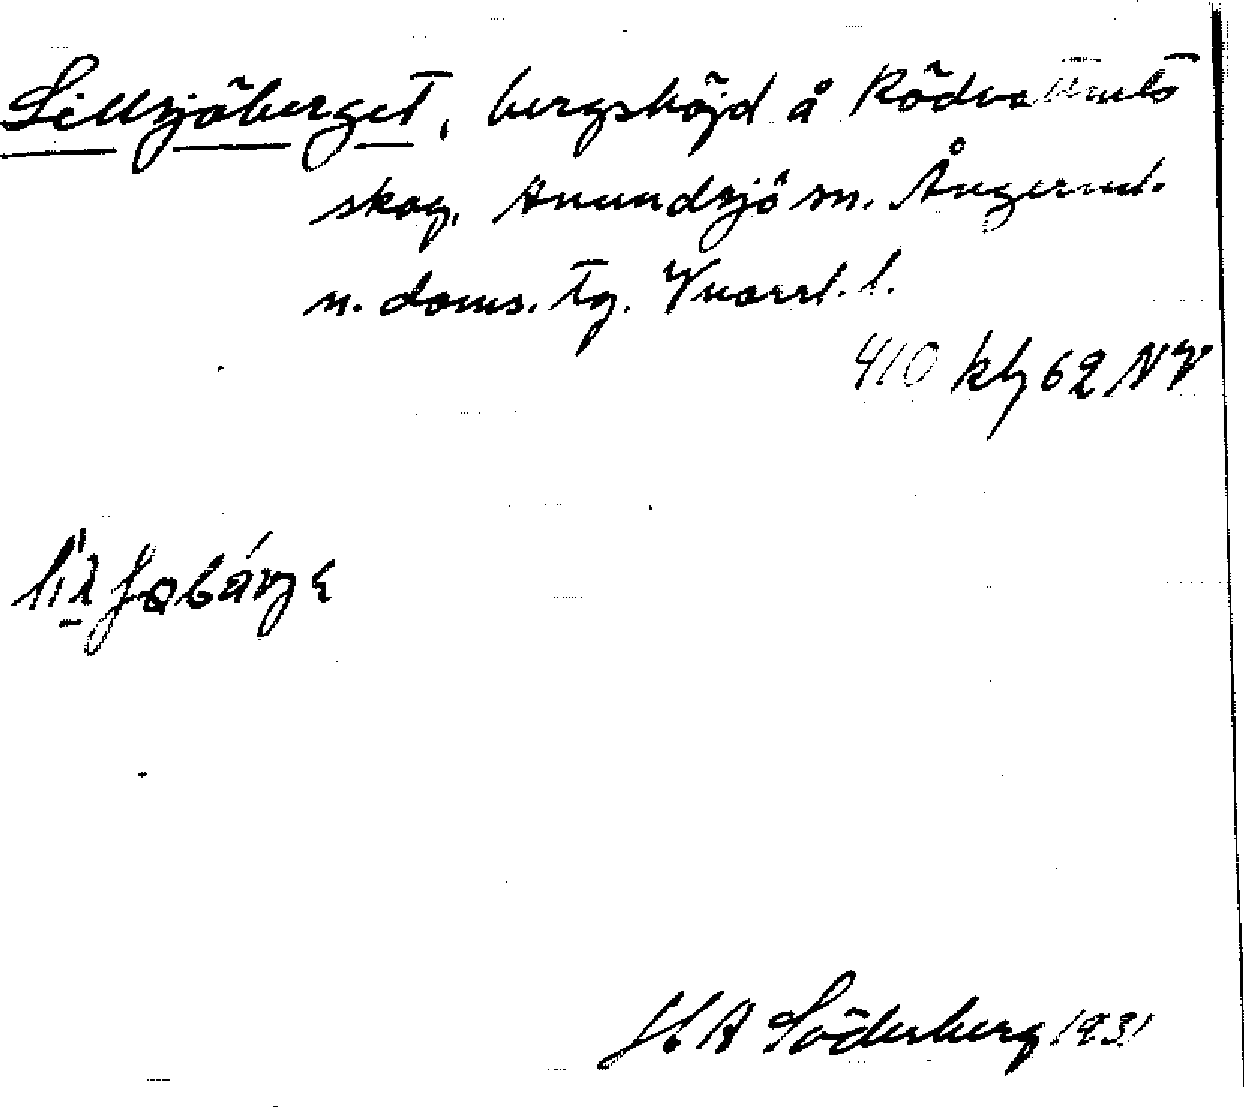 Lillsjöberget, bergshöjd å Rödvattnets
skog, Anundsjö sn. Ångerml.
n. doms. tg. Vnorrl. l.
410 kbl 62 NV
H A Söderberg 1931